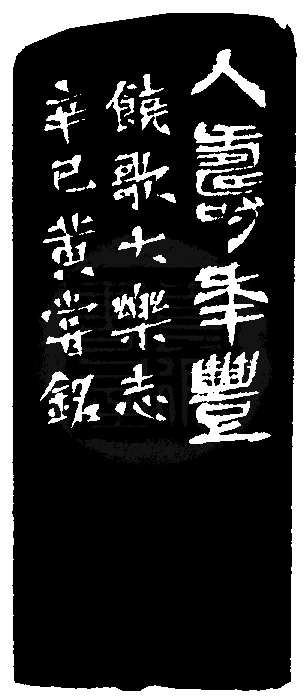 人壽年豐
饒歌大樂志
辛巳黃嘗銘